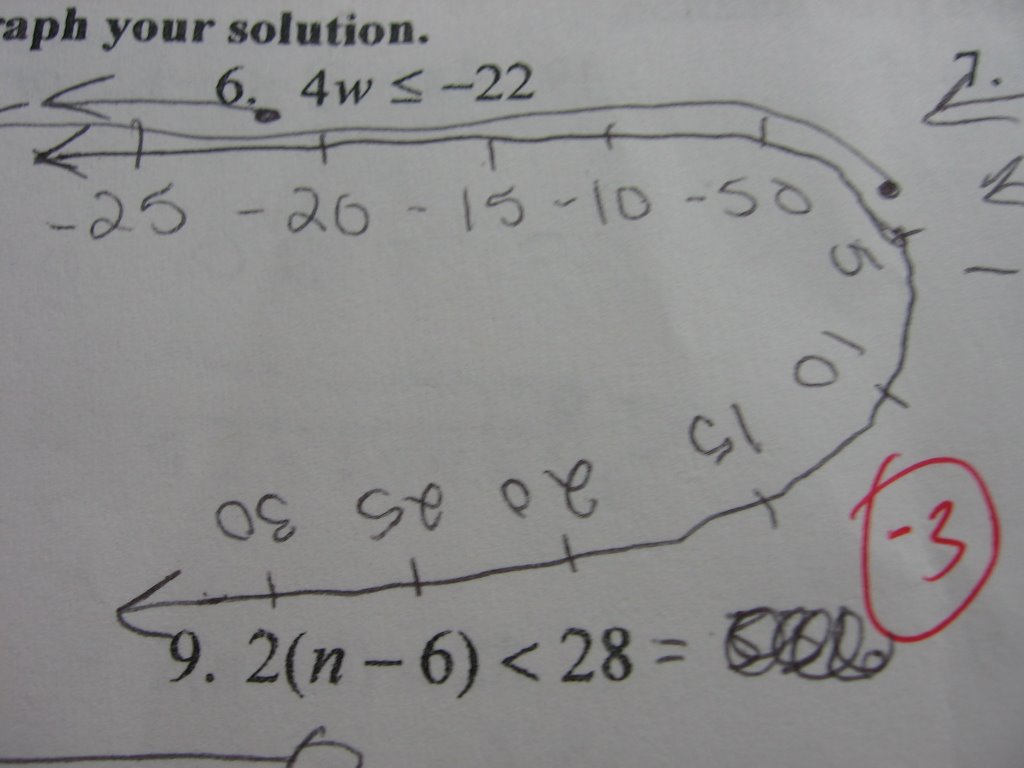 raph your solution.
6. 4w ≤ −22
7.
-25 -20 -15 -10 -50
5
10
15
20
25
30
-3
9. 2(n − 6) < 28 =